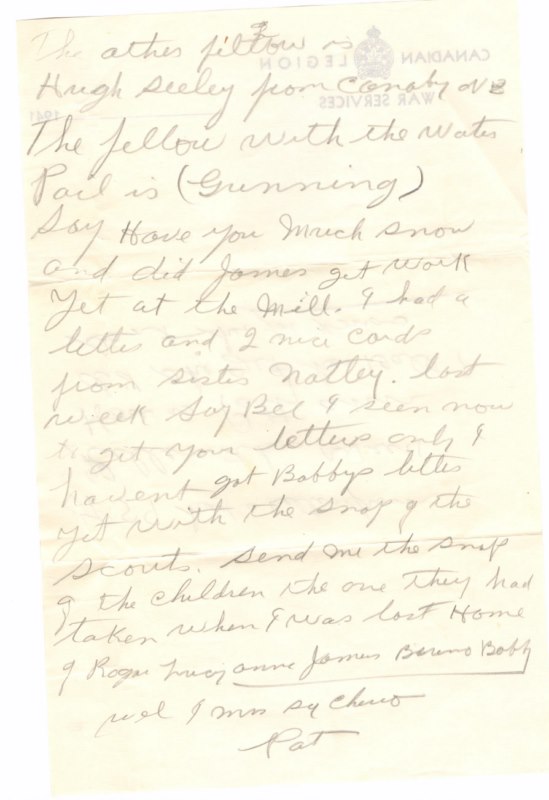 3
The other fellow is
Hugh Seeley from Canoby NB
The fellow with the water
Pail is (Gunning)
Say Have you Much snow
and did James get work
Yet at the Mill. I had a
letter and 2 nice cards
from sister Natley. last
week Say Bec I seem now
to get your letters only I
havent got Bobbys letter
yet with the snap of the
scouts. Send me the snap
of the children the one they had
taken when I was last Home
of Roger Lucy anne James Bruno Bobby
wel I mus say Cherio
Pat
CANADIAN LEGION
WAR SERVICES
1941